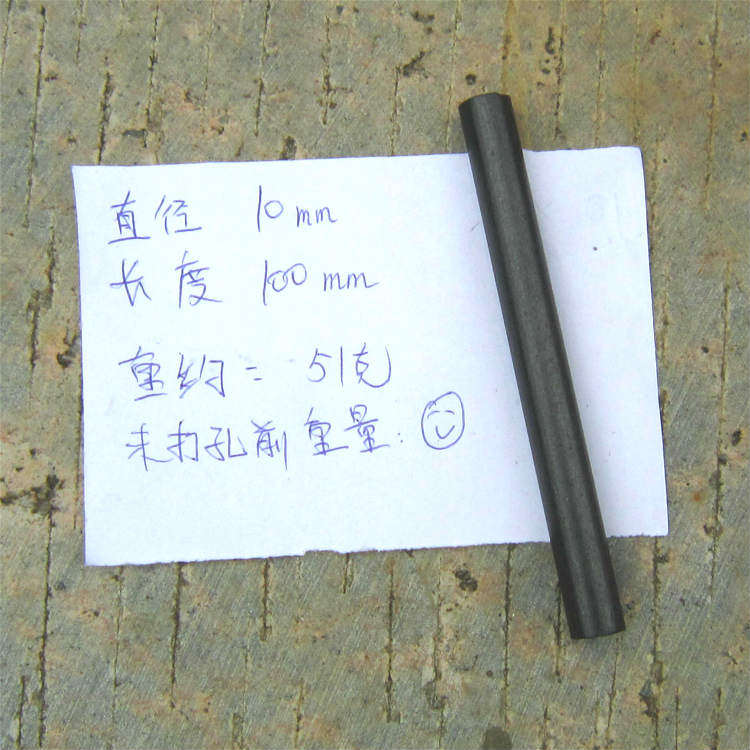 直径 10 mm
长度 100 mm
重约= 51克
未打孔前重量: